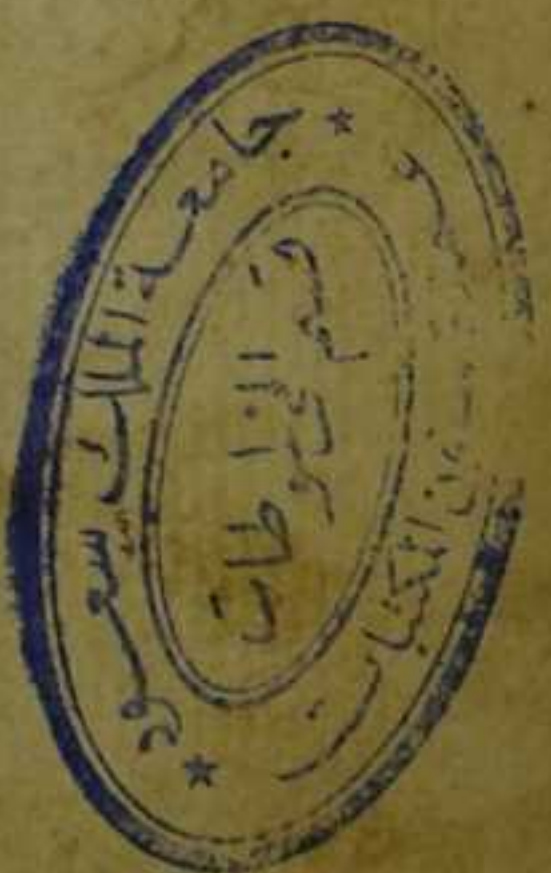 جامعة الملك سعود
شؤون المكتبات
قسم المخطوطات